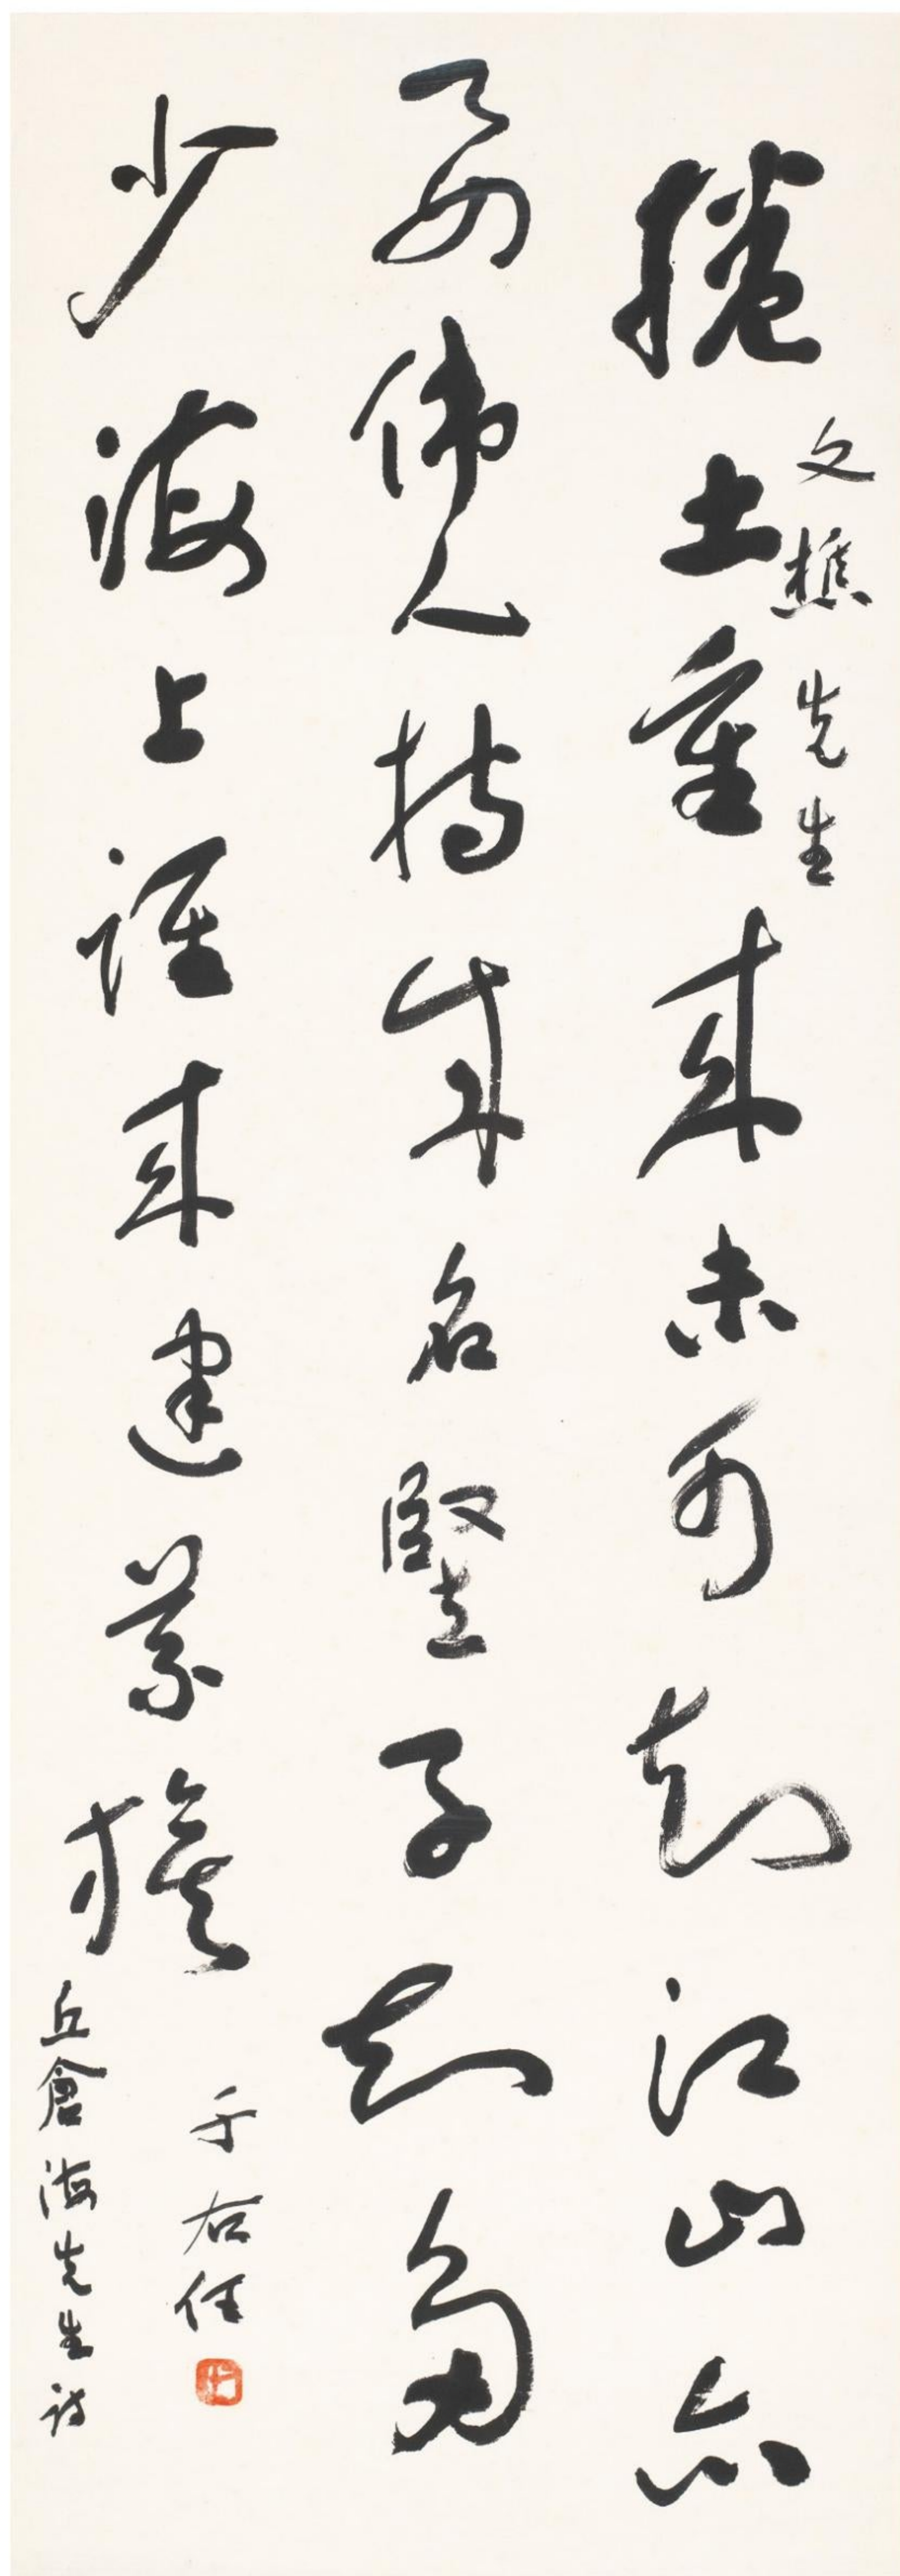 文樵先生
捲土重來未可知江山亦
要偉人持成名豎子知多
少海上誰來建義旗
于右任
丘倉海先生詩